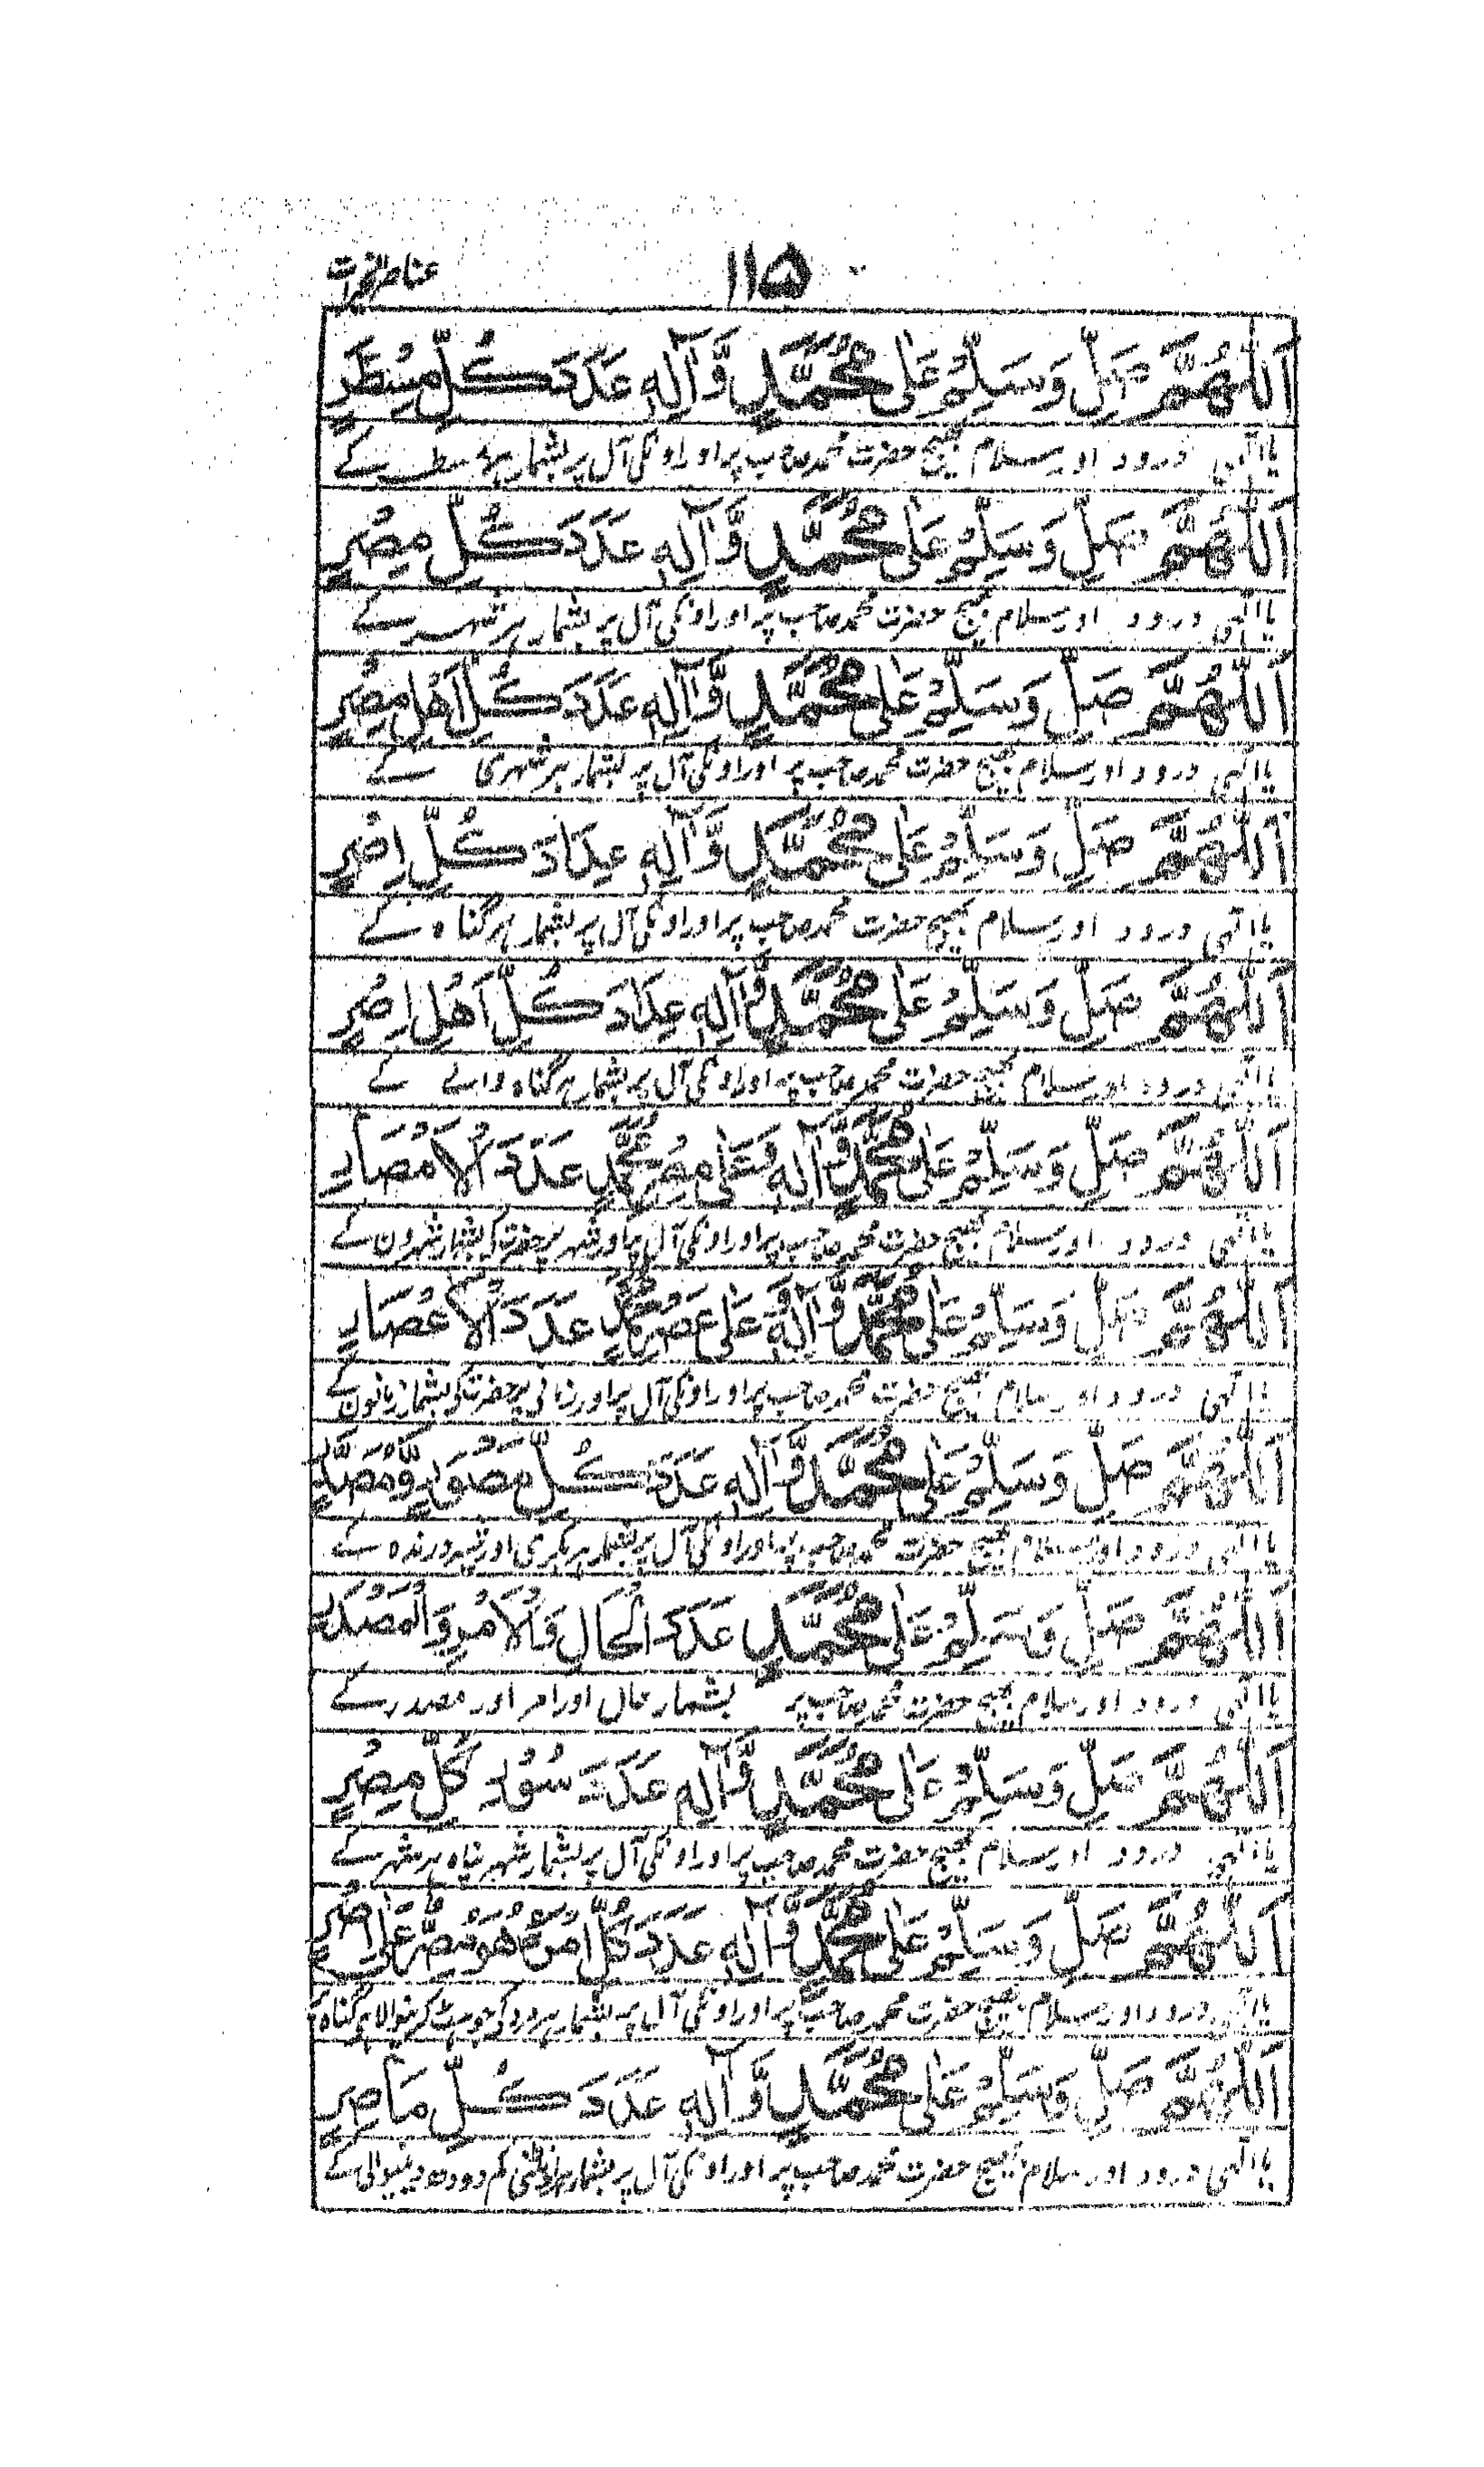 ۱۱۵
عناصر الخیرات
اَللّٰهُمَّ صَلِّ وَسَلِّمْ عَلٰی مُحَمَّدٍ وَّاٰلِهٖ عَدَدَ كُلِّ مِسْطَرٍ
یا الٰہی درود اور سلام بھیج حضرت محمد صاحب پر اور اونکی آل پر بشمار ہر مسطر کے
اَللّٰهُمَّ صَلِّ وَسَلِّمْ عَلٰی مُحَمَّدٍ وَّاٰلِهٖ عَدَدَ كُلِّ مِصْرٍ
یا الٰہی درود اور سلام بھیج حضرت محمد صاحب پر اور اونکی آل پر بشمار ہر شہر کے
اَللّٰهُمَّ صَلِّ وَسَلِّمْ عَلٰی مُحَمَّدٍ وَّاٰلِهٖ عَدَدَ كُلِّ اَهْلِ مِصْرٍ
یا الٰہی درود اور سلام بھیج حضرت محمد صاحب پر اور اونکی آل پر بشمار ہر شہری کے
اَللّٰهُمَّ صَلِّ وَسَلِّمْ عَلٰی مُحَمَّدٍ وَّاٰلِهٖ عِدَادَ كُلِّ اِصْرٍ
یا الٰہی درود اور سلام بھیج حضرت محمد صاحب پر اور اونکی آل پر بشمار ہر گناہ کے
اَللّٰهُمَّ صَلِّ وَسَلِّمْ عَلٰی مُحَمَّدٍ وَّاٰلِهٖ عِدَادَ كُلِّ اَهْلِ اِصْرٍ
یا الٰہی درود اور سلام بھیج حضرت محمد صاحب پر اور اونکی آل پر بشمار ہر گناہ والے کے
اَللّٰهُمَّ صَلِّ وَسَلِّمْ عَلٰی مُحَمَّدٍ وَّاٰلِهٖ وَعَلٰی مِصْرِ مُحَمَّدٍ عَدَدَ الْاَمْصَارِ
یا الٰہی درود اور سلام بھیج حضرت محمد صاحب پر اور اونکی آل پر اور شہر پر حضرت کے بشمار شہرون کے
اَللّٰهُمَّ صَلِّ وَسَلِّمْ عَلٰی مُحَمَّدٍ وَّاٰلِهٖ وَعَلٰی عَصْرِ مُحَمَّدٍ عَدَدَ الْاَعْصَارِ
یا الٰہی درود اور سلام بھیج حضرت محمد صاحب پر اور اونکی آل پر اور زمانی پر حضرت کی بشمار زمانون کے
اَللّٰهُمَّ صَلِّ وَسَلِّمْ عَلٰی مُحَمَّدٍ وَّاٰلِهٖ عَدَدَ كُلِّ
یا الٰہی درود اور سلام بھیج حضرت محمد صاحب پر اور اونکی آل پر بشمار ہر بکری اور شیر درندہ کے
اَللّٰهُمَّ صَلِّ وَسَلِّمْ عَلٰی مُحَمَّدٍ عَدَدَ الْحَالِ وَالْاَمْرِ وَالْمَصْدَرِ
یا الٰہی درود اور سلام بھیج حضرت محمد صاحب پر بشمار حال اور امر اور مصدر کے
اَللّٰهُمَّ صَلِّ وَسَلِّمْ عَلٰی مُحَمَّدٍ وَّاٰلِهٖ عَدَدَ سُوْرِ كُلِّ مِصْرٍ
یا الٰہی درود اور سلام بھیج حضرت محمد صاحب پر اور اونکی آل پر بشمار شہر پناہ ہر شہر کے
اَللّٰهُمَّ صَلِّ وَسَلِّمْ عَلٰی مُحَمَّدٍ وَّاٰلِهٖ عَدَدَ كُلِّ امْرَءٍ هُوَ مُصِرٌّ عَلٰی اِصْرٍ
یا الٰہی درود اور سلام بھیج حضرت محمد صاحب پر اور اونکی آل پر بشمار ہر مرد کی جو ہٹ کرنیوالا ہی گناہ پر
اَللّٰهُمَّ صَلِّ وَسَلِّمْ عَلٰی مُحَمَّدٍ وَّاٰلِهٖ عَدَدَ كُلِّ مَاصِرٍ
یا الٰہی درود اور سلام بھیج حضرت محمد صاحب پر اور اونکی آل پر بشمار ہر اونٹنی کم دودھ دینیوالی کے